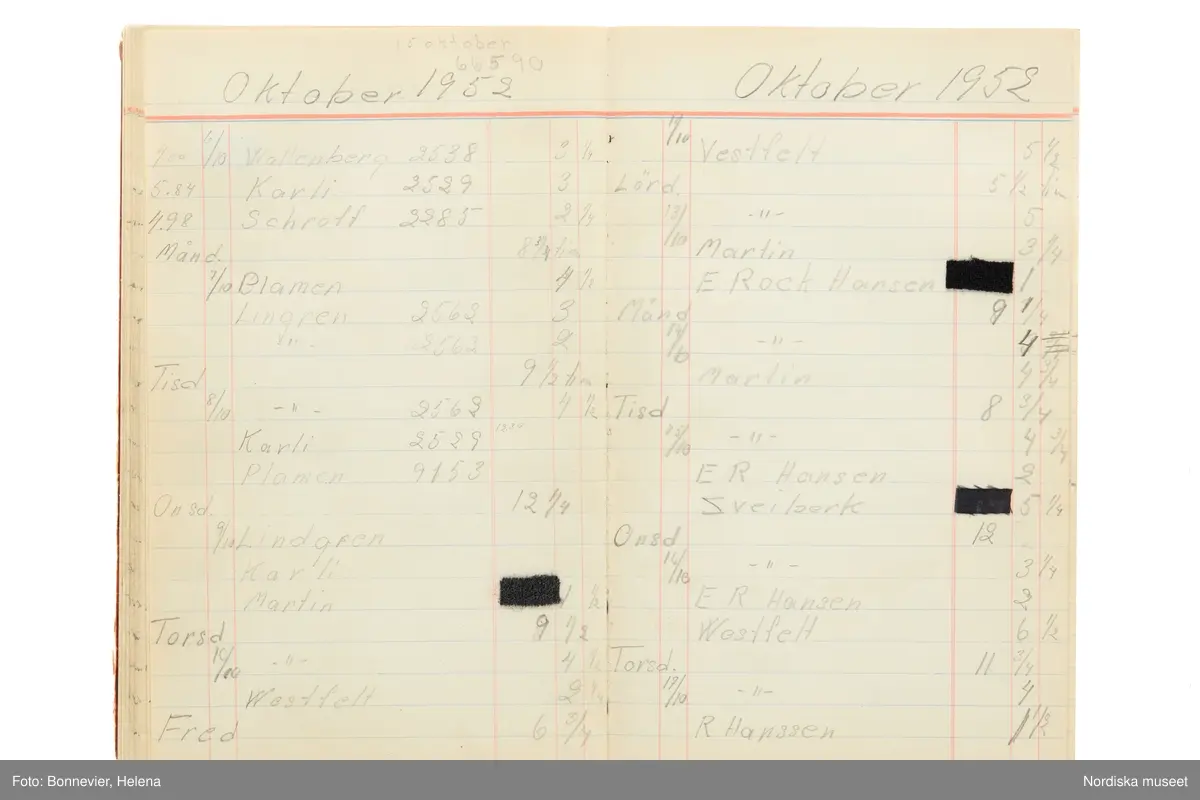 15 oktober
66590
Oktober 1952
Wallenberg 2538 3
5.84 Karli 2529 3
4.98 Schrott 2285 2 1/4
Månd. 8 3/4 tim
7/10 Plamen 4 1/2
Lingren 2562 3
-"- 2562 2
Tisd 9 1/2 tim
8/10 -"- 2562 4 1/2
Karli 2529
Plamen 9153
Onsd. 12 1/4
9/10 Lindgren
Karli
Martin 1 1/2
Torsd 9 1/2
10/10 -"- 4 1/2
Westfelt 2 1/4
Fred 6 3/4
Oktober 1952
11/10 Vestfelt 5 1/2
Lörd. 5 1/2
13/10 -"- 5
Martin 3 1/4
E Rock Hansen 1
Månd 9 1/4
-"- 4
Martin 4 3/4
Tisd 8 3/4
15/10 -"- 4 3/4
E R Hansen 2
Sveiberk 5 1/4
Onsd 12
16/10 -"- 3 1/4
E R Hansen 2
Westfelt 6 1/2
Torsd. 11 3/4
17/10 -"- 4
R Hanssen 1 1/2
Foto: Bonnevier, Helena
Nordiska museet